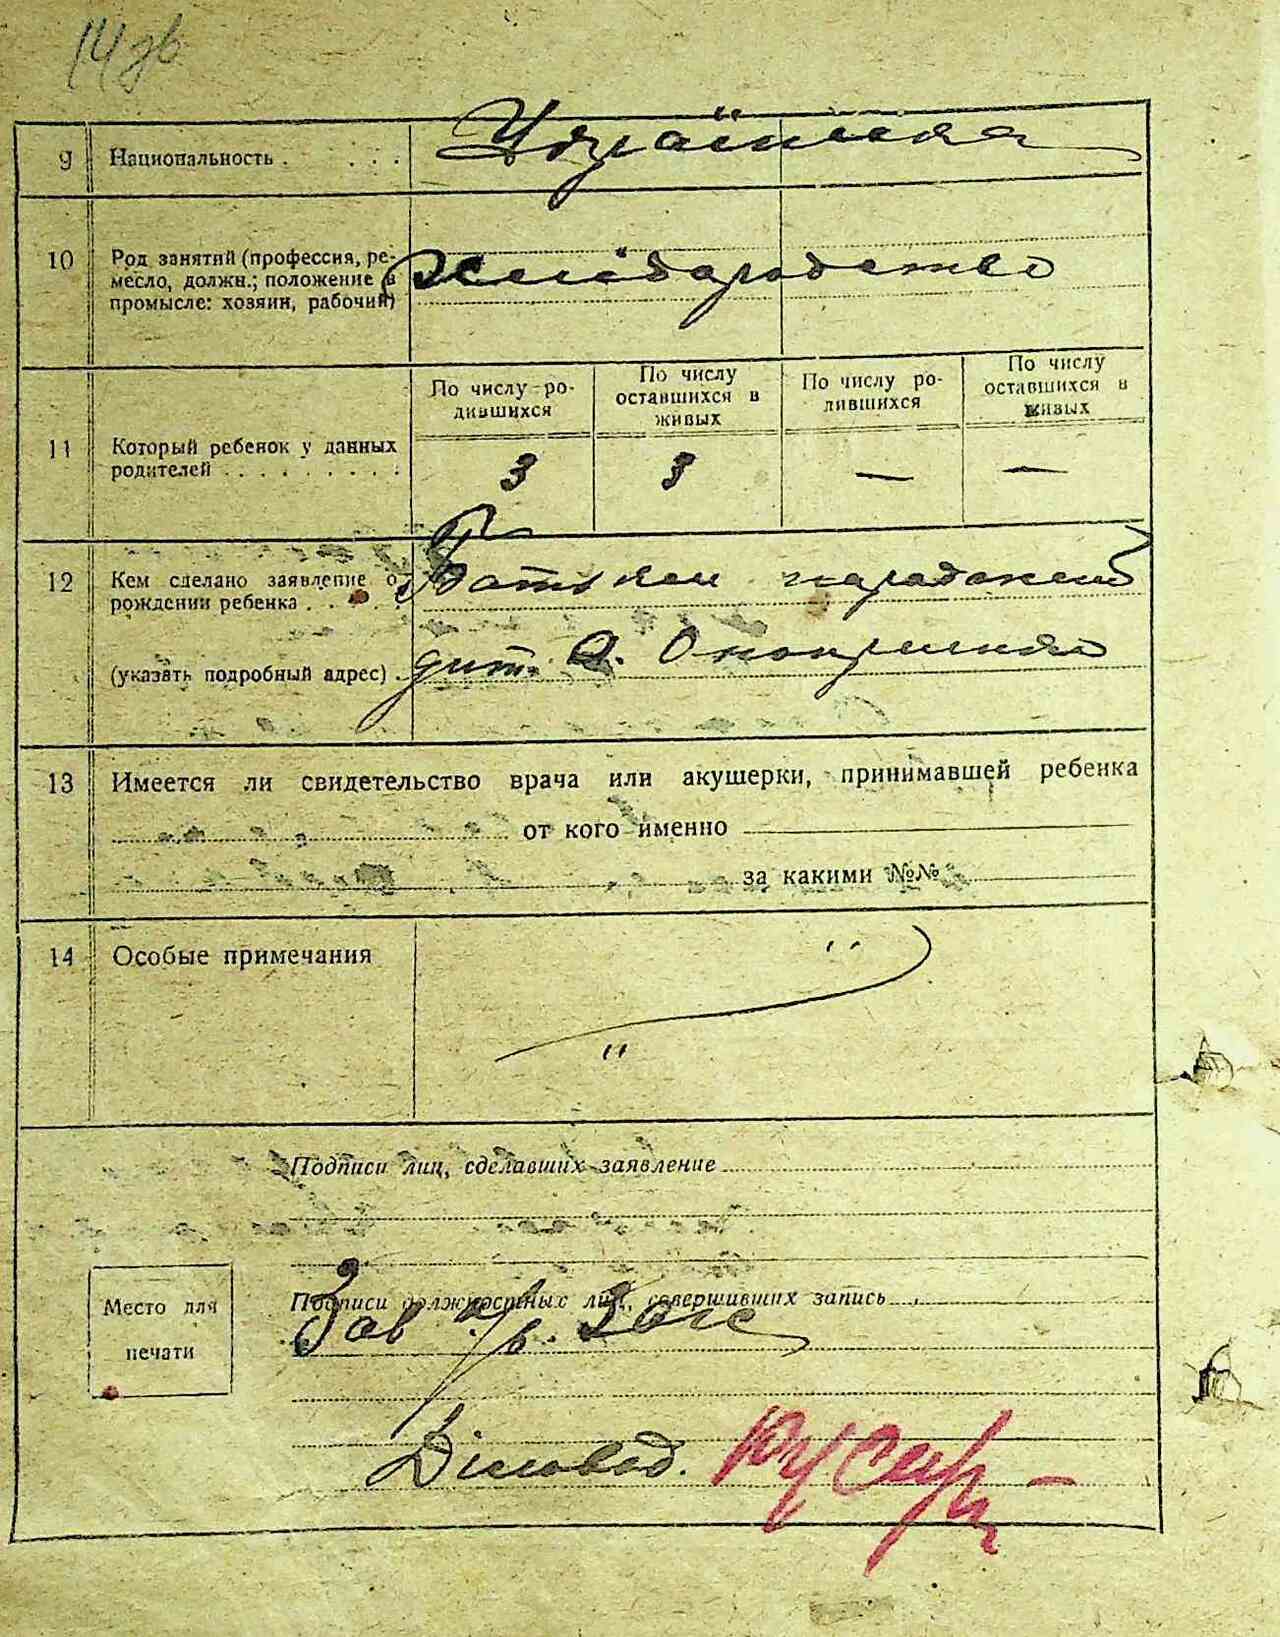 14 зв
9 Национальность . . . . Українська
10 Род занятий (профессия, ре-
месло, должн.; положение в
промысле: хозяин, рабочий) хлiборобство
По числу ро-
дившихся
По числу
оставшихся в
живых
По числу ро-
дившихся
По числу
оставшихся в
живых
11 Который ребенок у данных
родителей . . . . . . . . . 3 3 — —
12 Кем сделано заявление о
рождении ребенка . . . . . Батьком народжен
(указать подробный адрес) . дит. О.
13 Имеется ли свидетельство врача или акушерки, принимавшей ребенка
от кого именно
за какими №№
14 Особые примечания
Подписи лиц, сделавших заявление
Подписи должностных лиц, совершивших запись
Зав Загс
Место для
печати
Діловод.